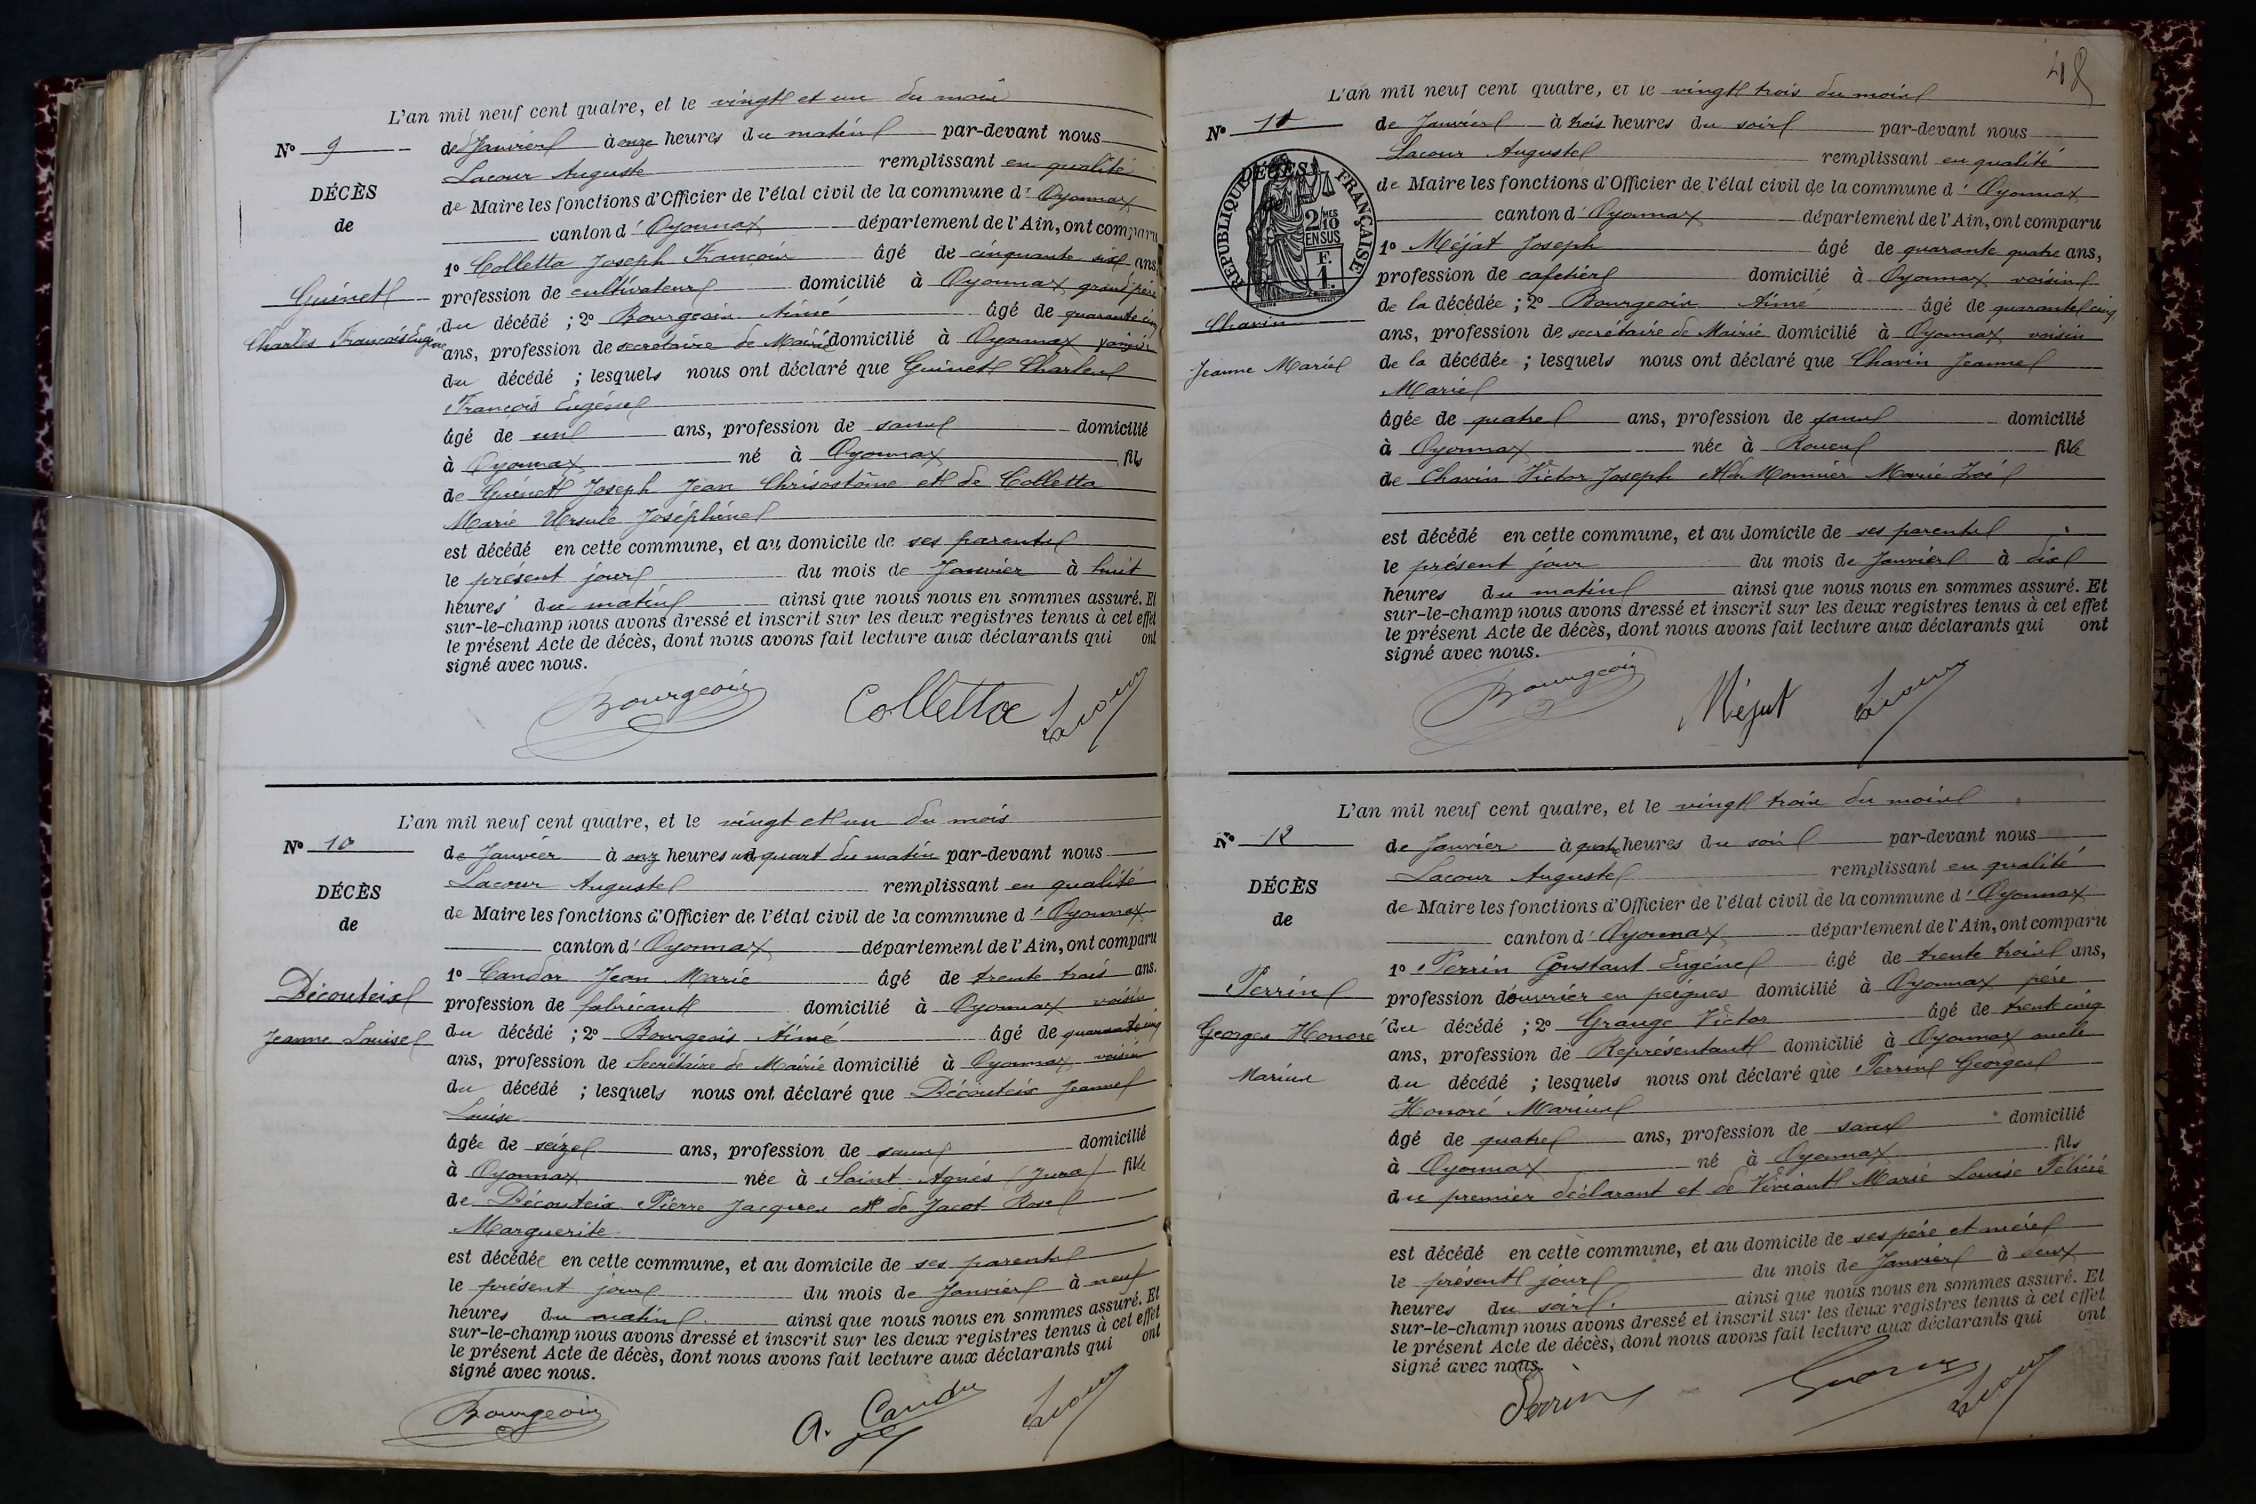 L'an mil neuf cent quatre, et le vingt et un du mois
No 9
de Janvier à onze heures du matin par-devant nous
Lacour Auguste remplissant en qualité
DÉCÈS
de Maire les fonctions d'Officier de l'état civil de la commune d' Oyonnax
de
canton d' Oyonnax département de l'Ain, ont comparu
1o Colletta Joseph François âgé de cinquante six ans,
Guinet
profession de cultivateur domicilié à Oyonnax grand père
du décédé ; 2o Bourgeois Aimé âgé de quarante cinq
Charles François Eugène
ans, profession de secrétaire de Mairie domicilié à Oyonnax voisin
du décédé ; lesquels nous ont déclaré que Guinet Charles
François Eugène
âgé de un ans, profession de sans domicilié
à Oyonnax né à Oyonnax fils
de Guinet Joseph Jean Chrisostôme et de Colletta
Marie Ursule Joséphine
est décédé en cette commune, et au domicile de ses parents
le présent jour du mois de Janvier à huit
heures du matin ainsi que nous nous en sommes assuré. Et
sur-le-champ nous avons dressé et inscrit sur les deux registres tenus à cet effet
le présent Acte de décès, dont nous avons fait lecture aux déclarants qui ont
signé avec nous.
Bourgeois Colletta Lacour
L'an mil neuf cent quatre, et le vingt et un du mois
No 10
de Janvier à onz heures un quart du matin par-devant nous
Lacour Auguste remplissant en qualité
DÉCÈS
de Maire les fonctions d'Officier de l'état civil de la commune d' Oyonnax
de
canton d' Oyonnax département de l'Ain, ont comparu
1o Candor Jean Marie âgé de trente trois ans.
Découteix
profession de fabricant domicilié à Oyonnax voisin
Jeanne Louise
du décédé ; 2o Bourgeois Aimé âgé de quarante cinq
ans, profession de Secrétaire de Mairie domicilié à Oyonnax voisin
du décédé ; lesquels nous ont déclaré que Découteix Jeanne
Louise
âgée de seize ans, profession de sans domicilié
à Oyonnax née à Saint Agnès (Jura) fille
de Découteix Pierre Jacques et de Jacot Rose
Marguerite
est décédée en cette commune, et au domicile de ses parents
le présent jour du mois de Janvier à neuf
heures du matin ainsi que nous nous en sommes assuré. Et
sur-le-champ nous avons dressé et inscrit sur les deux registres tenus à cet effet
le présent Acte de décès, dont nous avons fait lecture aux déclarants qui ont
signé avec nous.
Bourgeois A. Lacour
48
L'an mil neuf cent quatre, et le vingt trois du mois
No 11
de Janvier à trois heures du soir par-devant nous
Lacour Auguste remplissant en qualité
DÉCÈS
de Maire les fonctions d'Officier de l'état civil de la commune d' Oyonnax
RÉPUBLIQUE FRANÇAISE
2 MES
10
EN SUS
F.
1.
canton d' Oyonnax département de l'Ain, ont comparu
1o Méjat Joseph âgé de quarante quatre ans,
profession de cafetier domicilié à Oyonnax voisin
de la décédée ; 2o Bourgeois Aimé âgé de quarante cinq
Chavin
ans, profession de secrétaire de Mairie domicilié à Oyonnax voisin
Jeanne Marie
de la décédée ; lesquels nous ont déclaré que Chavin Jeanne
Marie
âgée de quatre ans, profession de sans domicilié
à Oyonnax née à Rouen fille
de Chavin Victor Joseph et de Monnier Marie Zoé
est décédé en cette commune, et au domicile de ses parents
le présent jour du mois de Janvier à dix
heures du matin ainsi que nous nous en sommes assuré. Et
sur-le-champ nous avons dressé et inscrit sur les deux registres tenus à cet effet
le présent Acte de décès, dont nous avons fait lecture aux déclarants qui ont
signé avec nous.
Bourgeois Méjat Lacour
L'an mil neuf cent quatre, et le vingt trois du mois
No 12
de Janvier à quatre heures du soir par-devant nous
Lacour Auguste remplissant en qualité
DÉCÈS
de Maire les fonctions d'Officier de l'état civil de la commune d' Oyonnax
de
canton d' Oyonnax département de l'Ain, ont comparu
1o Perrin Constant Eugène âgé de trente trois ans,
Perrin
profession d'ouvrier en peignes domicilié à Oyonnax père
Georges Honoré
du décédé ; 2o Grange Victor âgé de trente cinq
ans, profession de Représentant domicilié à Oyonnax oncle
Marius
du décédé ; lesquels nous ont déclaré que Perrin Georges
Honoré Marius
âgé de quatre ans, profession de sans domicilié
à Oyonnax né à Oyonnax fils
du premier déclarant et de Viviant Marie Louise Félicie
est décédé en cette commune, et au domicile de ses père et mère
le présent jour du mois de Janvier à deux
heures du soir. ainsi que nous nous en sommes assuré. Et
sur-le-champ nous avons dressé et inscrit sur les deux registres tenus à cet effet
le présent Acte de décès, dont nous avons fait lecture aux déclarants qui ont
signé avec nous.
Perrin Lacour